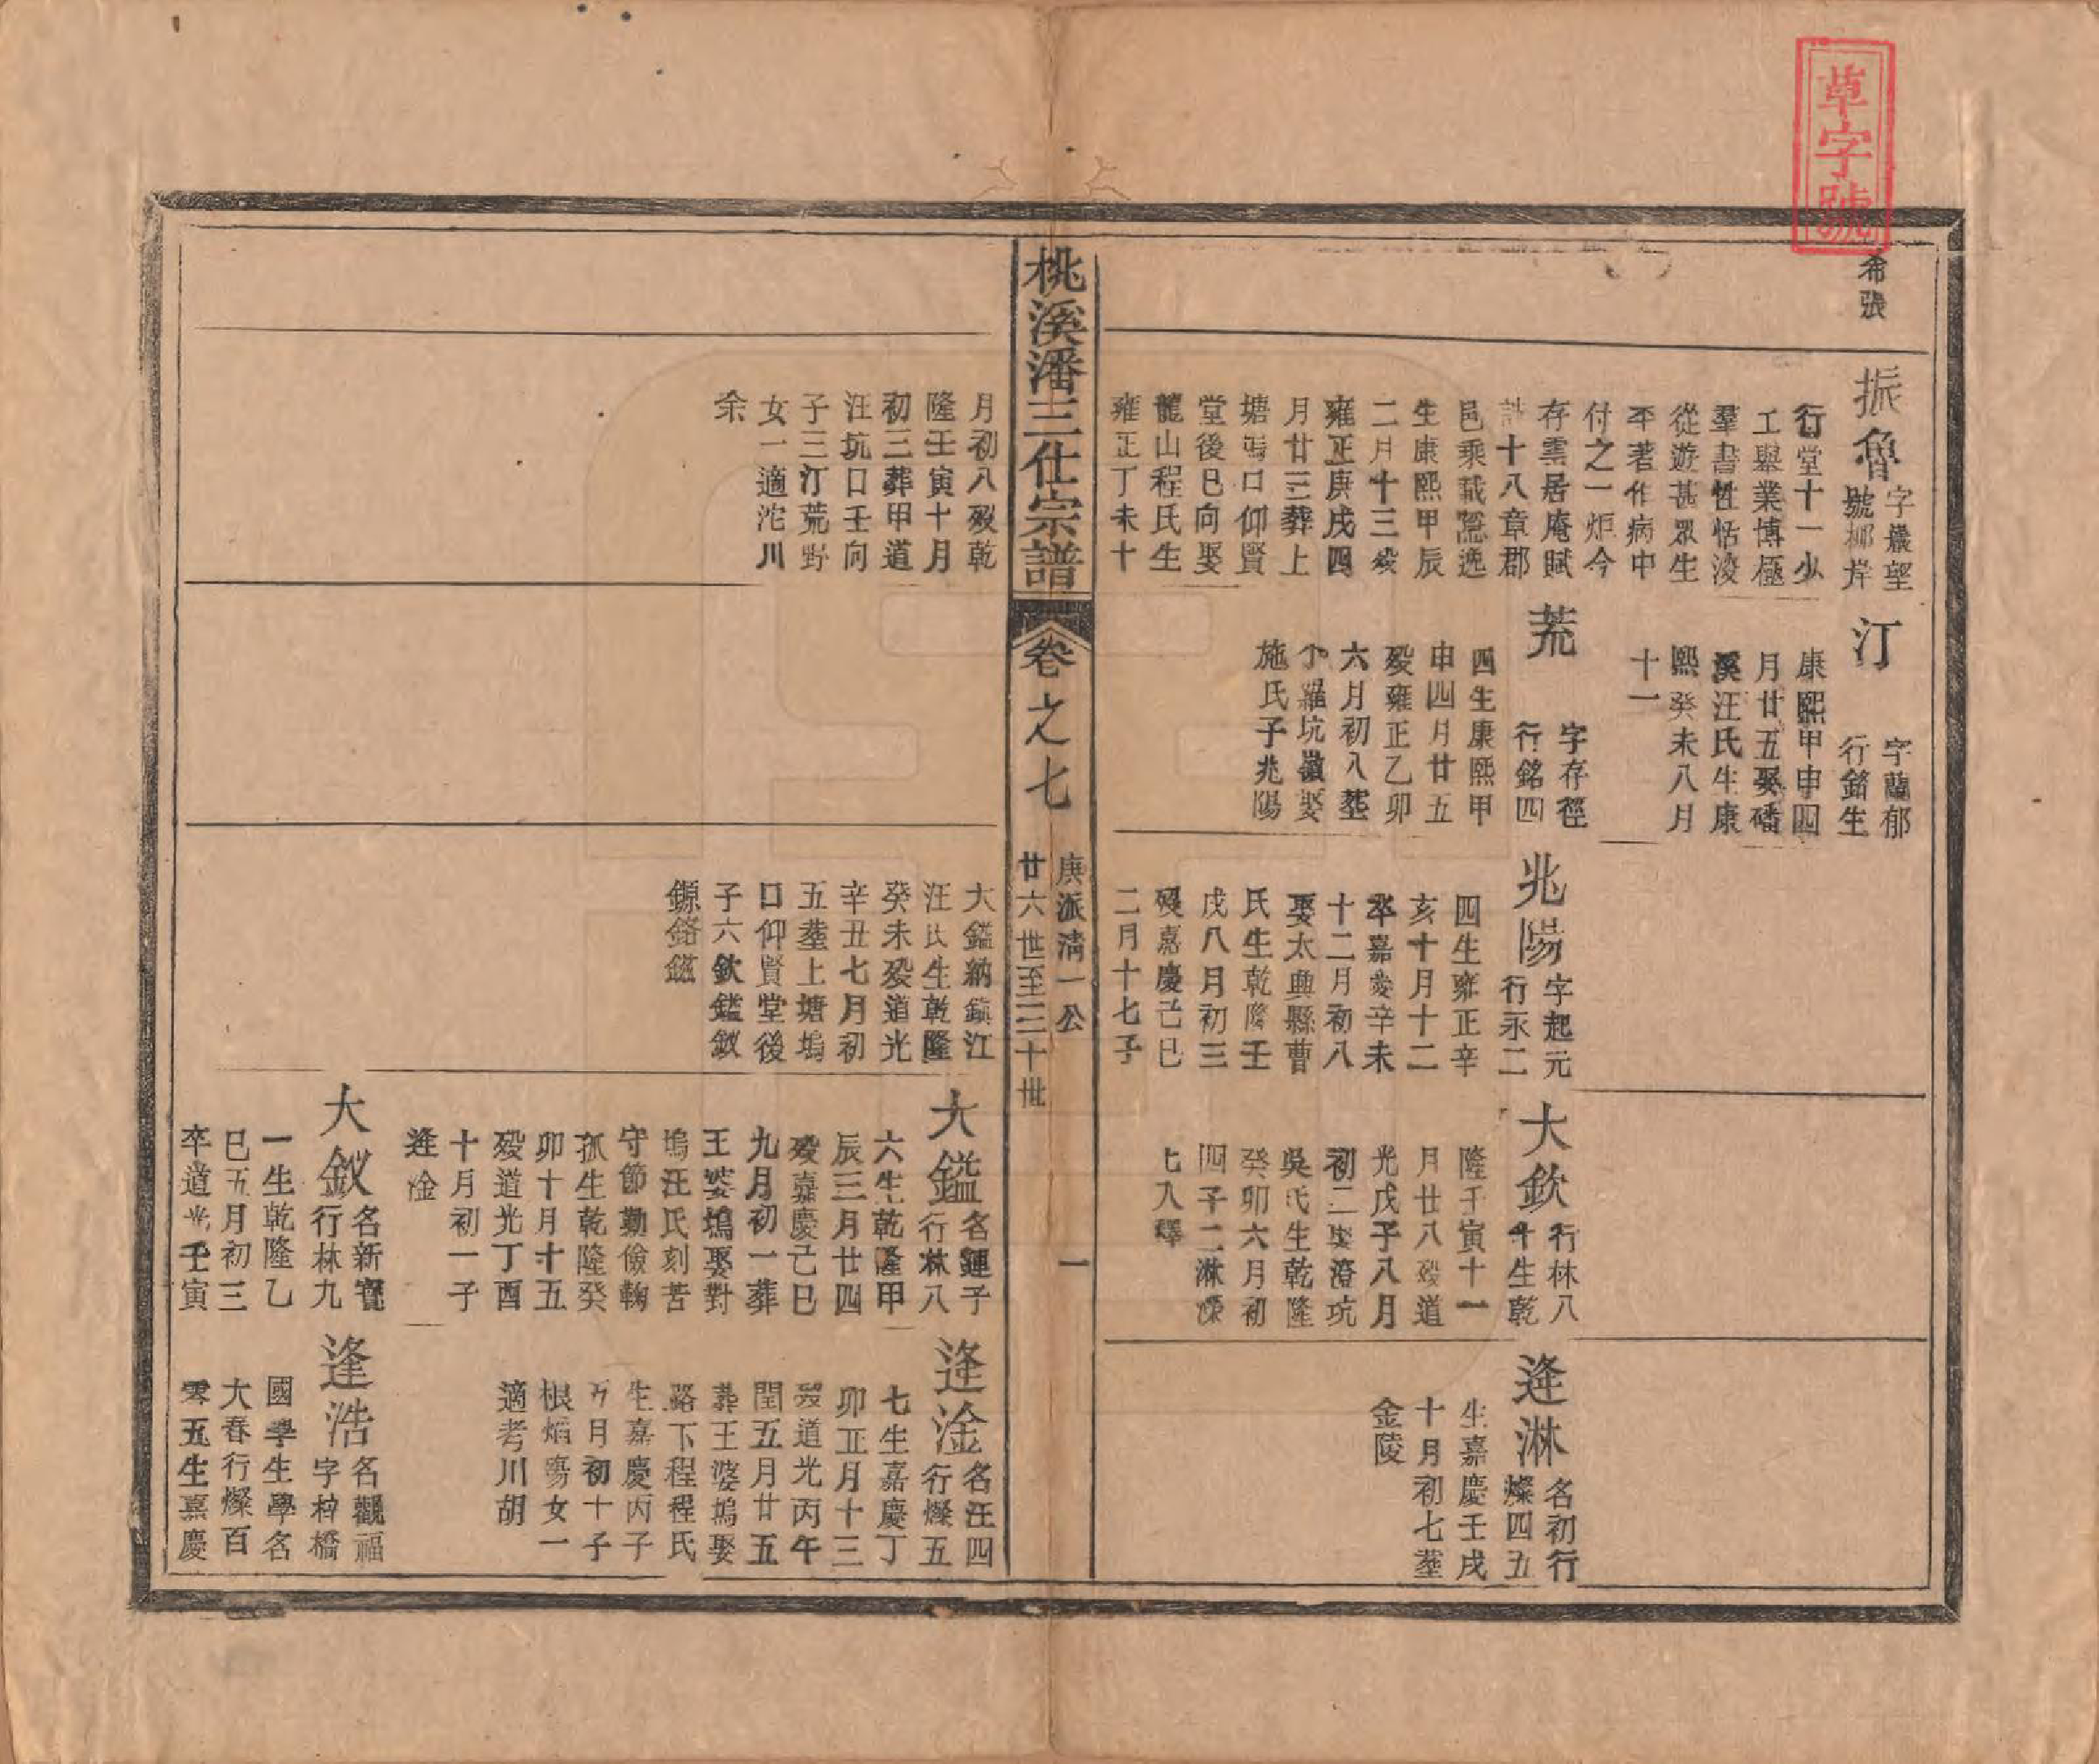 草字號
希張
振魯
字巖望
號柳岸
行堂十一少
工舉業博極
羣書性恬淡
從遊甚眾生
平著作病中
付之一炬今
存棗居庵賦
計十八章郡
邑乘載隱逸
生康熙甲辰
二月十三歿
雍正庚戌四
月廿三葬上
塘塢口仰賢
堂後巳向娶
龍山程氏生
雍正丁未十
月初八歿乾
隆壬寅十月
初三葬甲道
汪坑口壬向
子三汀荒野
女一適沱川
余
汀
字蘭郁
行銘生
康熙甲申四
月廿五娶磻
溪汪氏生康
熙癸未八月
十一
荒
字存徑
行銘四
四生康熙甲
申四月廿五
歿雍正乙卯
六月初八塟
小羅坑嶺娶
施氏子兆陽
兆陽
字起元
行永二
四生雍正辛
亥十月十二
卒嘉慶辛未
十二月初八
娶太興縣曹
氏生乾隆壬
戌八月初三
歿嘉慶己巳
二月十七子
大鎰納鎮江
汪氏生乾隆
癸未歿道光
辛丑七月初
五塟上塘塢
口仰賢堂後
子六欽鎰釵
鎵鉻鎡
大欽
行林八
十生乾
隆壬寅十一
月廿八歿道
光戊子八月
初二娶澄坑
吳氏生乾隆
癸卯六月初
四子二淋
七入繹
大鎰
名鍾子
行林八
六生乾隆甲
辰三月廿四
歿嘉慶己巳
九月初一葬
王婆塢娶對
塢汪氏刻苦
守節勤儉鞠
孤生乾隆癸
卯十月十五
歿道光丁酉
十月初一子
逢淦
大釵
名新寶
行林九
一生乾隆乙
巳五月初三
卒道光壬寅
逢淋
名初行
燦四五
生嘉慶壬戌
十月初七塟
金陵
逢淦
名汪四
行燦五
七生嘉慶丁
卯正月十三
歿道光丙午
閏五月廿五
葬王婆塢娶
路下程程氏
生嘉慶丙子
五月初十子
根 女一
適考川胡
逢浩
名觀福
字梓橋
國學生學名
大春行燦百
零五生嘉慶
桃溪潘三仕宗譜
卷之七
庚派清一公
廿六世至三十世
一